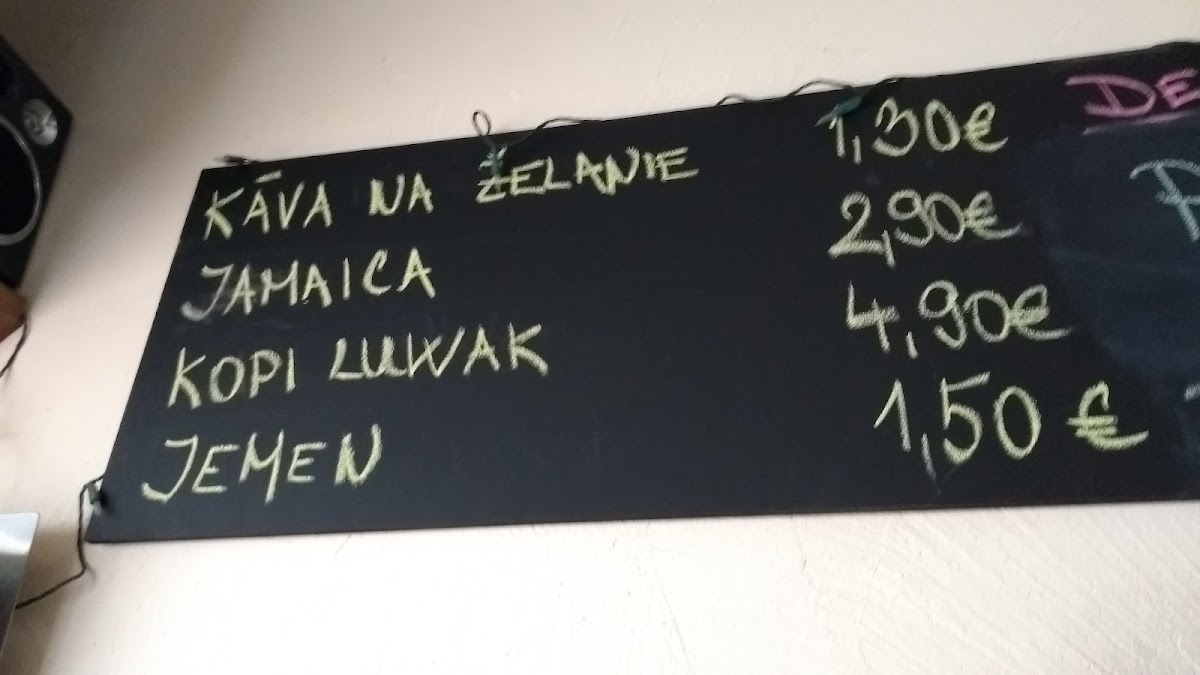 KÁVA NA ŽELANIE 1,30€
JAMAICA 2,90€
KOPI LUWAK 4,90€
JEMEN 1,50 €
DE